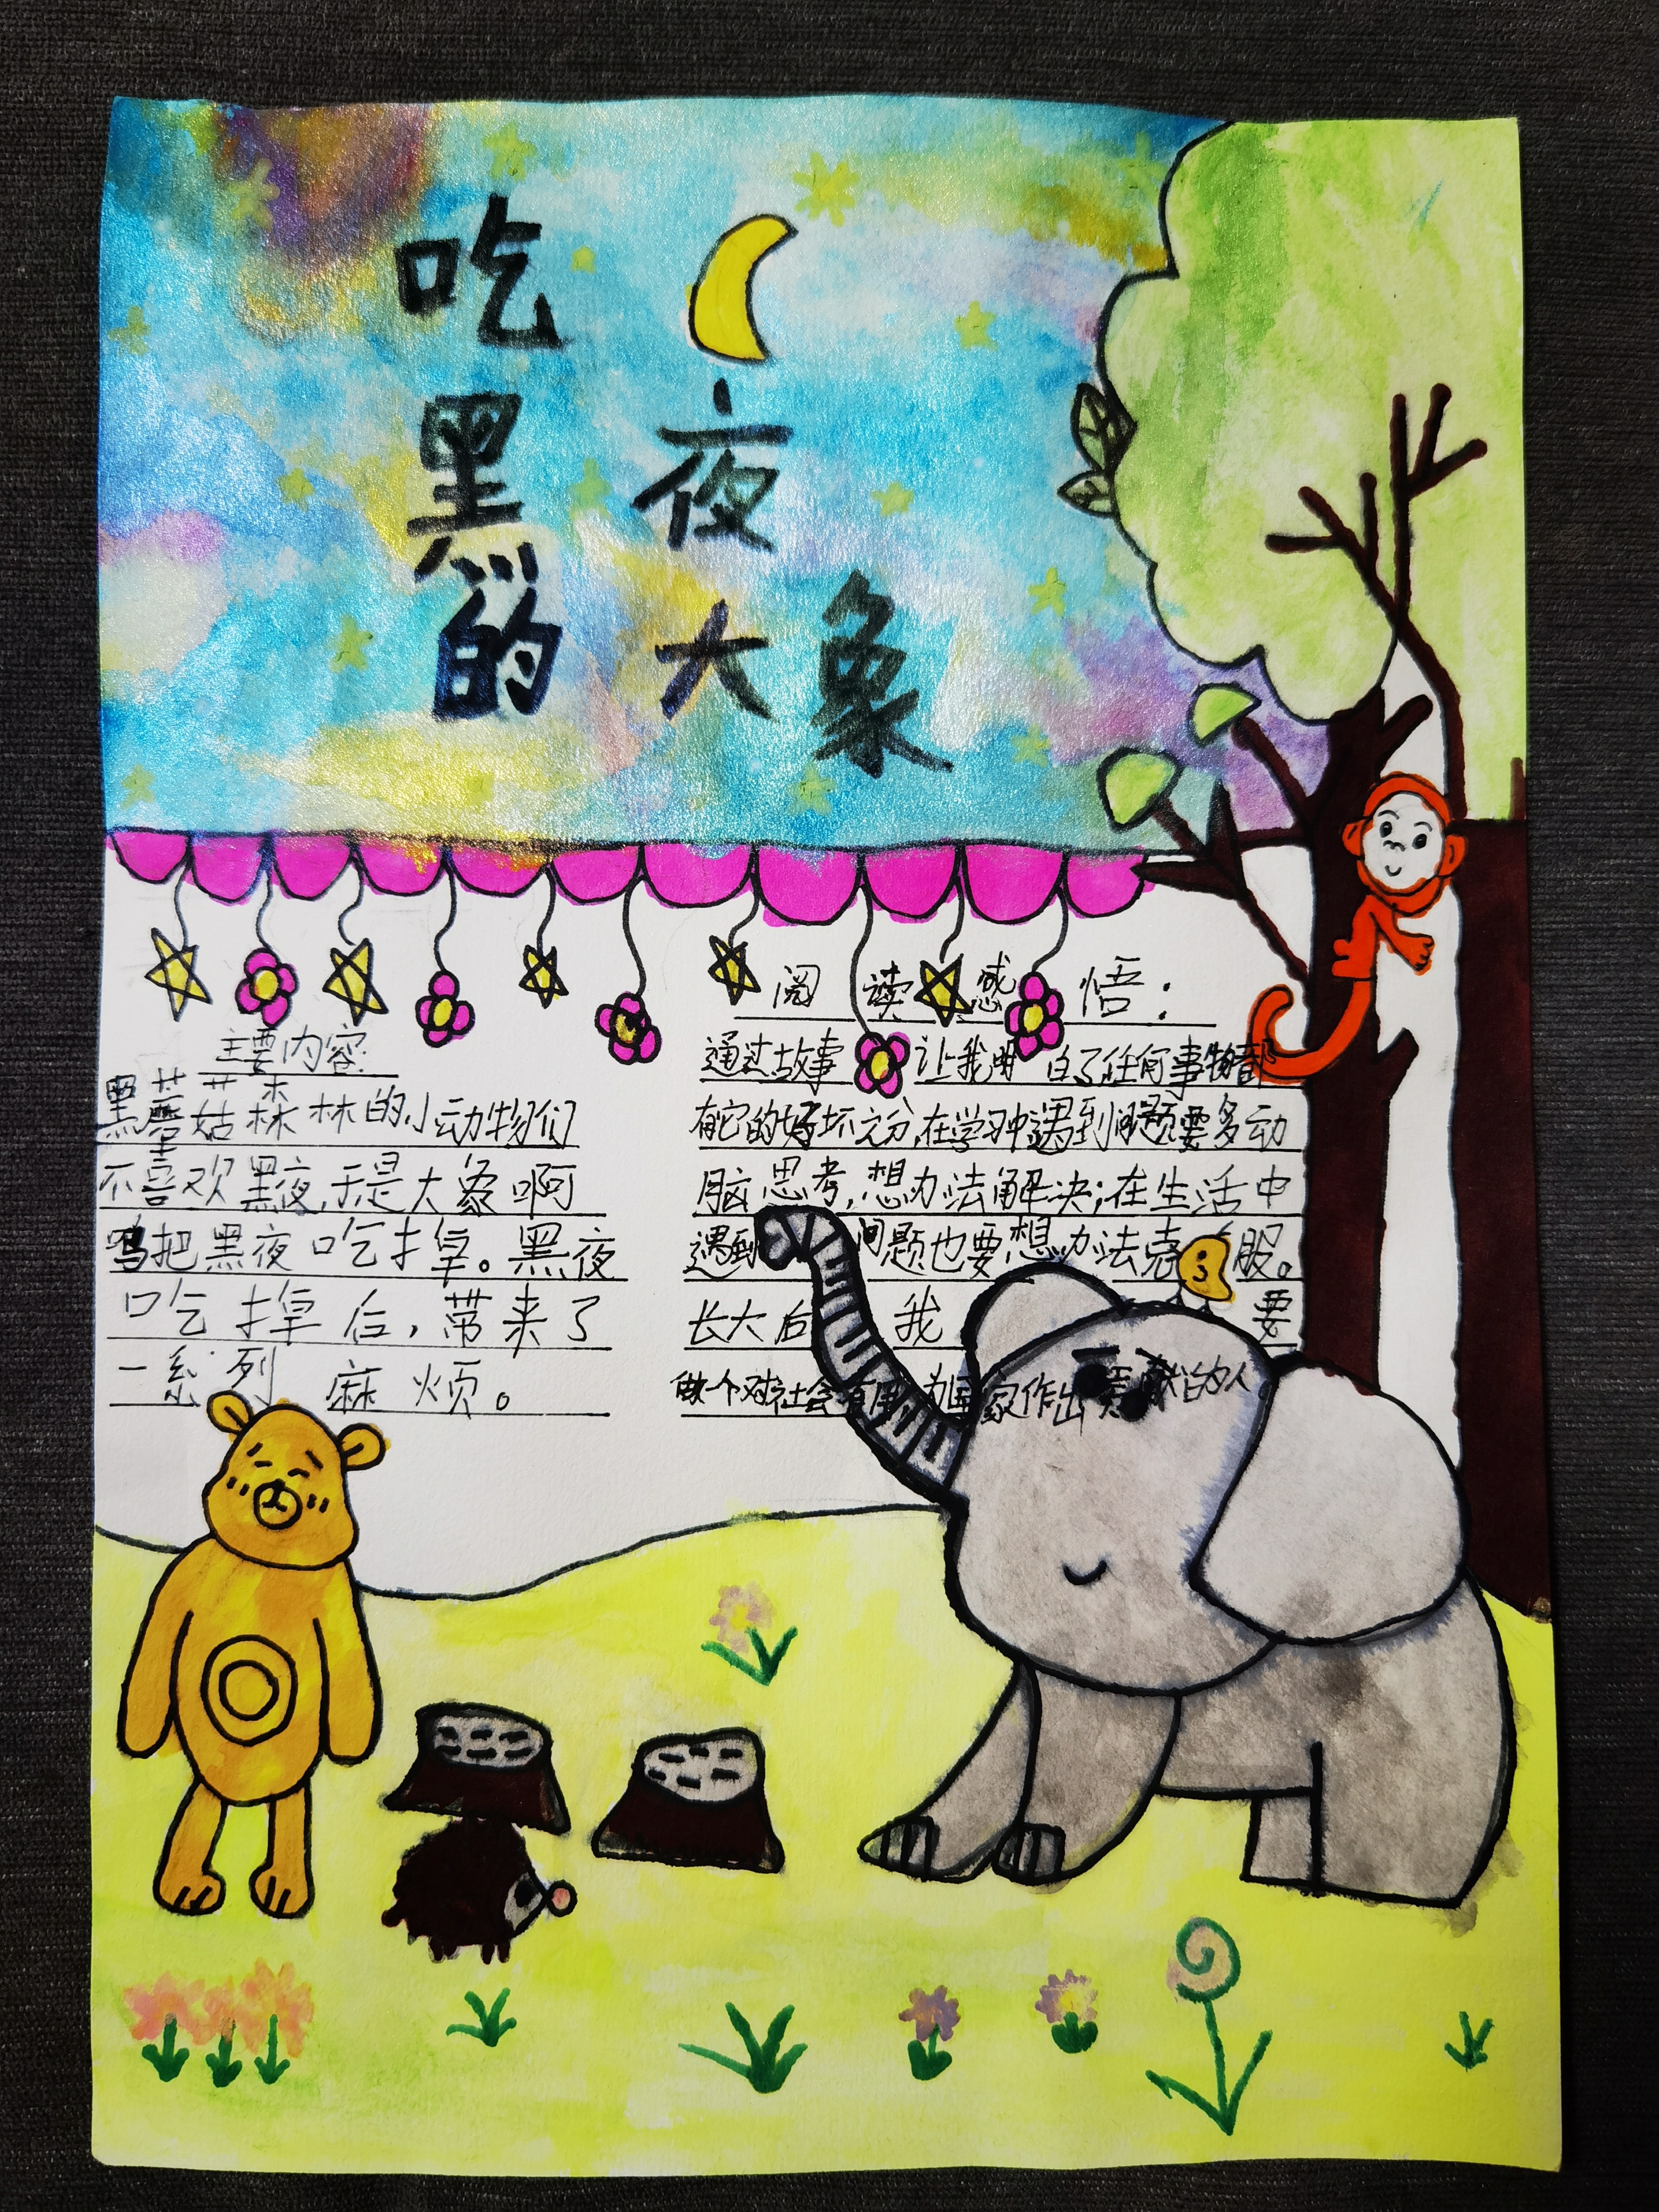 吃
黑夜
的大象
主要内容
黑蘑菇森林的小动物们
不喜欢黑夜,于是大象啊
呜把黑夜吃掉。黑夜
吃掉后,带来了
一系列麻烦。
阅读感悟:
通过故事让我明白了任何事物都
有它的好坏之分,在学习中遇到问题要多动
脑思考,想办法解决;在生活中
遇到问题也要想办法克服。
长大后我要
做个对社会有用,为国家作出贡献的人